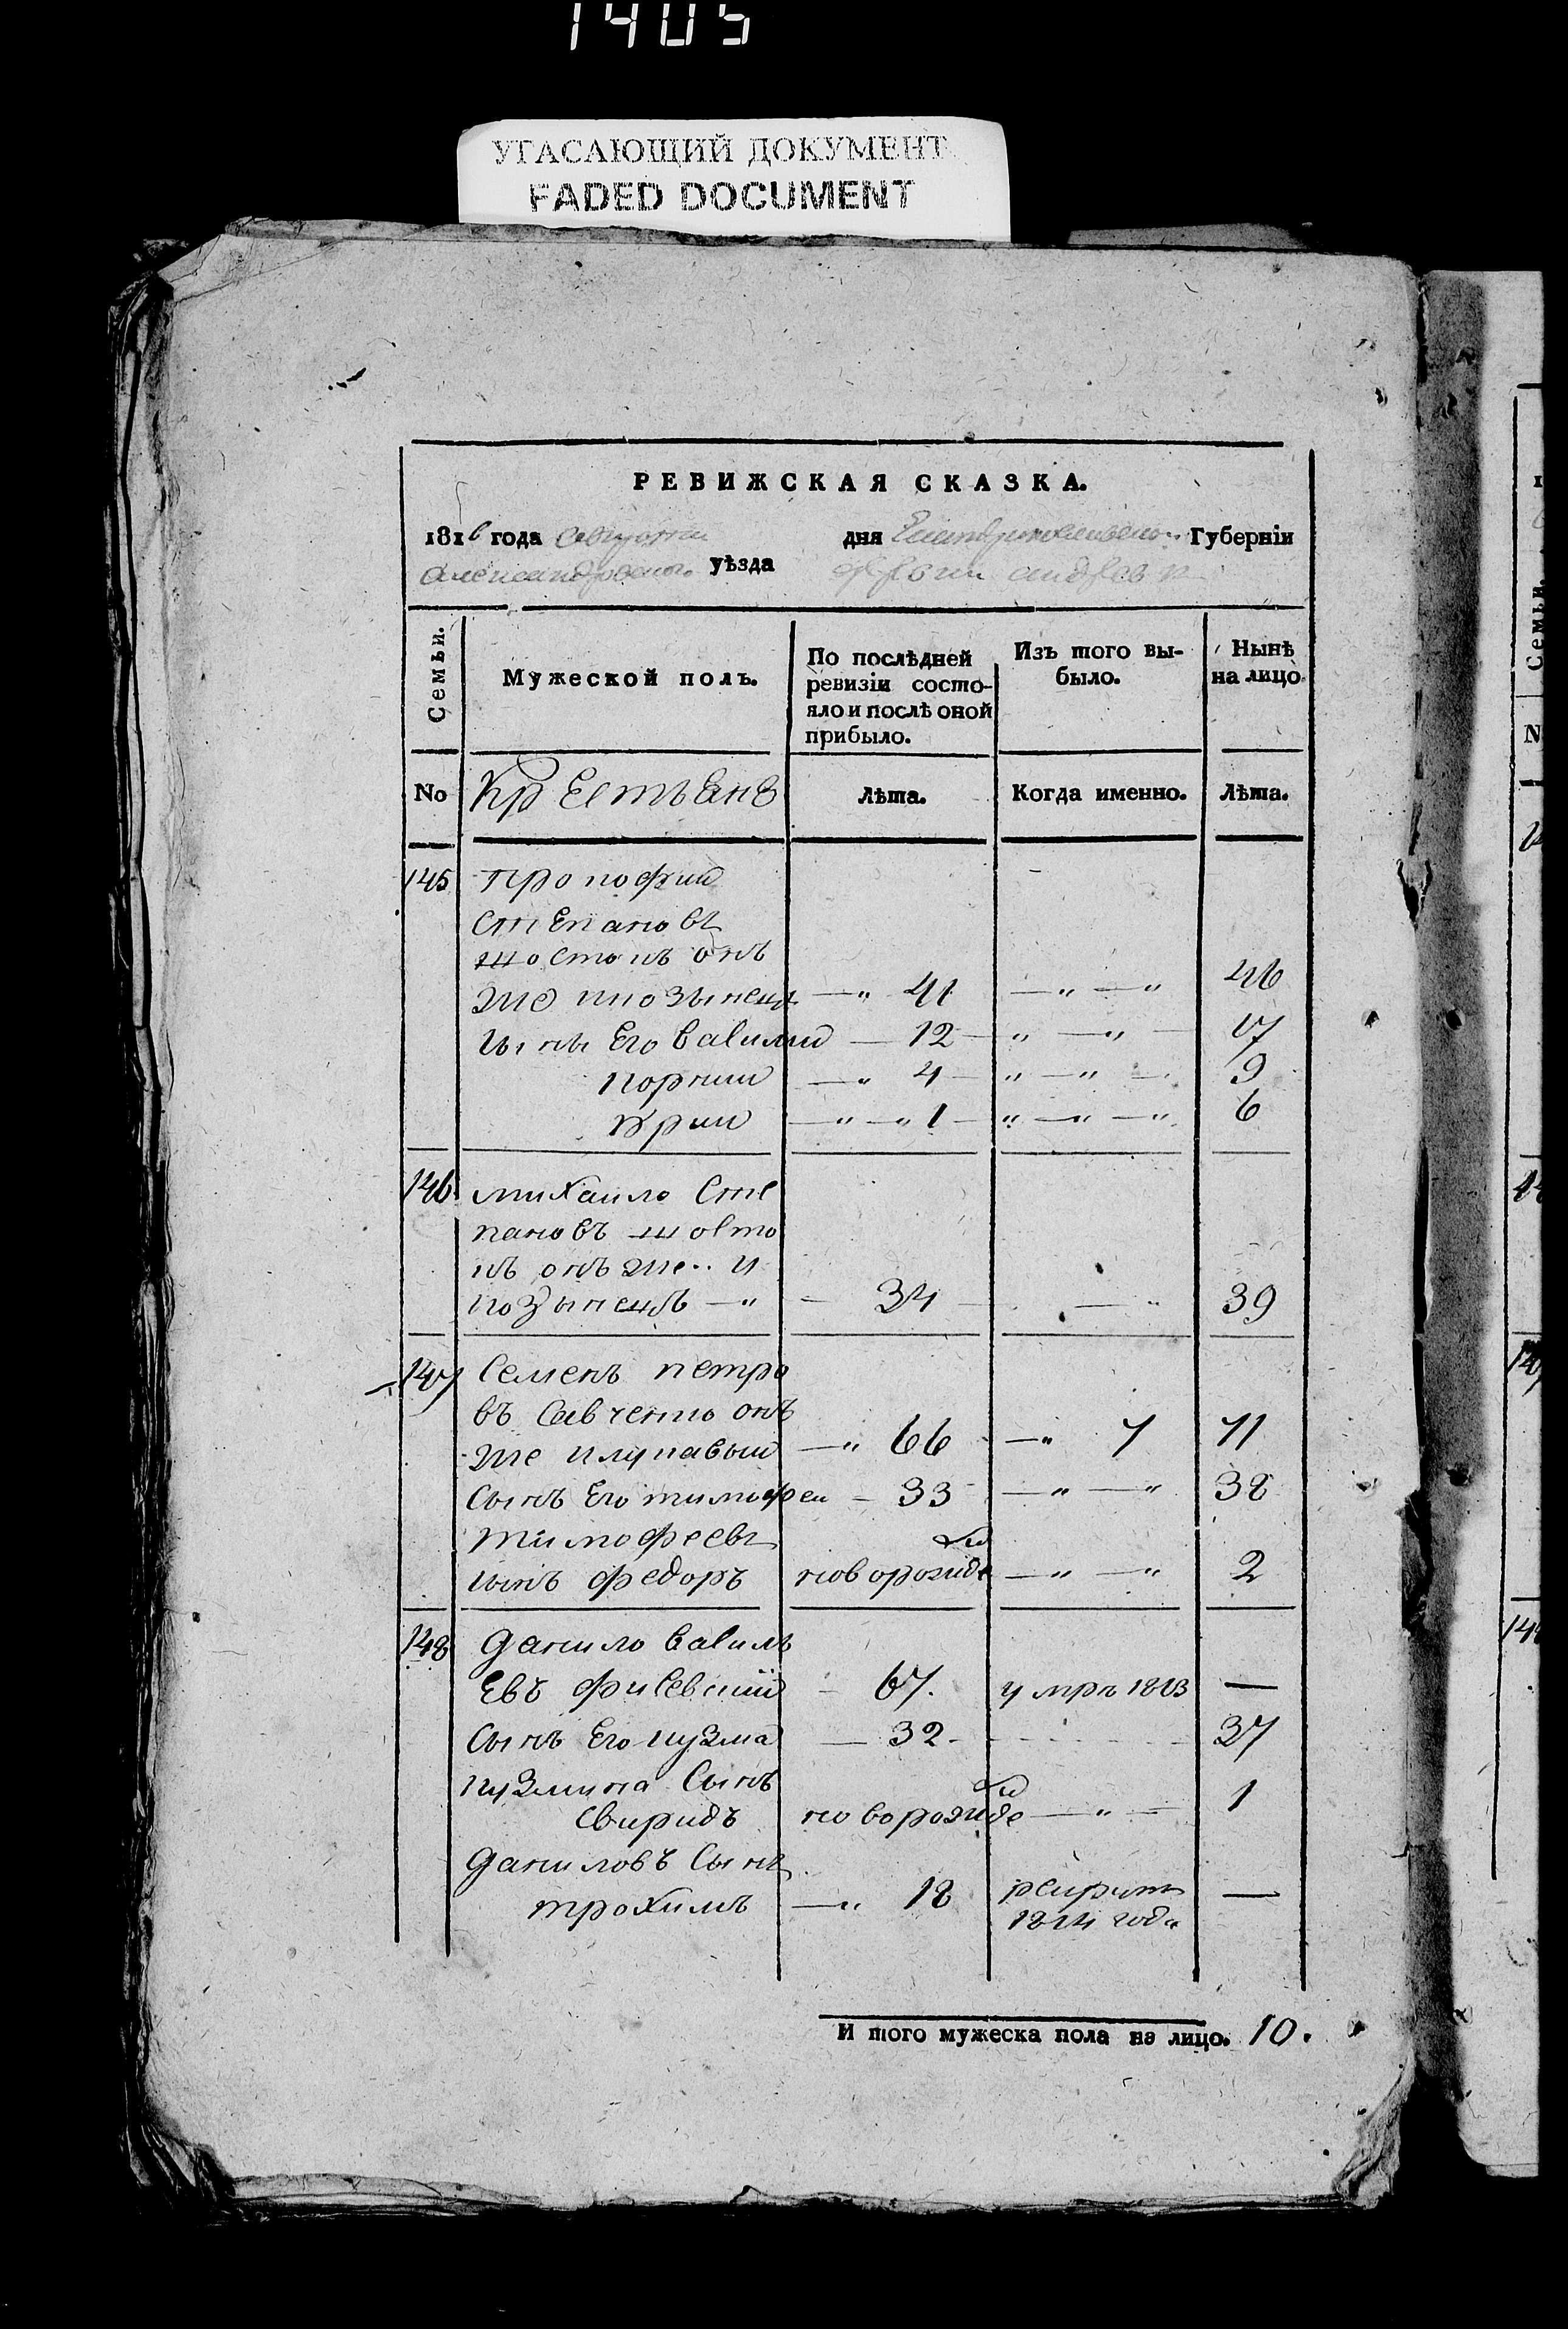 1405
УГАСАЮЩИЙ ДОКУМЕНТ
FADED DOCUMENT
РЕВИЖСКАЯ СКАЗКА.
1816 года августа дня Екатеринославской Губерніи
Александровского уѣзда
Семьи. Мужеской полъ. По послѣдней ревизіи состо- яло и послѣ оной прибыло. Изъ того вы- было. Нынѣ на лицо
No Крестьянъ Лѣта. Когда именно. Лѣта.
145 прокофий
степановъ
шостакъ онъ
же кнозыненко —„ 41 —„ —„ 46
сынъ его василий — 12 — „ —„ — 17
корний —„ 4 — „ —„ — 9
юрий —„ —„ 1 — „ —„ —„ 6
146 михаило сте
пановъ шоста
къ онъ же.. к
нозыненко —„ — 34 — — „ 39
147 Семенъ петро
въ савченко онъ
же клунавый —„ 66 —„ 7 71
сынъ его тимофеи — 33 —„ —„ 38
тимофеевъ ый
сынъ федоръ новорожде —„ —„ 2
148 данило василь
евъ фисевский — 67. умръ 1813 —
сынъ его кузма — 32 - 37
кузмина сынъ ый
свиридъ новорожде —„ — 1
даниловъ сынъ
трохимъ —„ 18 рекрутъ —
1814 года
И того мужеска пола на лицо. 10.
Семьи.
N